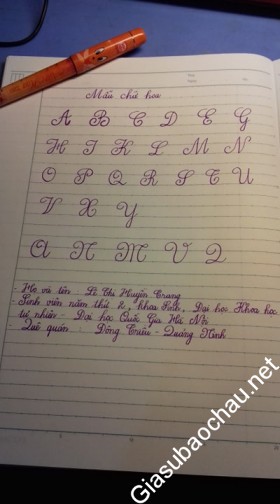 Mẫu chữ hoa
A B C D E G
H I K L M N
O P Q R S T U
V X Y
A N M V Q
- Họ và tên: Lê Thị Huyền Trang
- Sinh viên năm thứ 2, khoa Toán, Đại học Khoa học
tự nhiên - Đại học Quốc Gia Hà Nội
- Quê quán : Đông Triều - Quảng Ninh
Giasubaochau.net